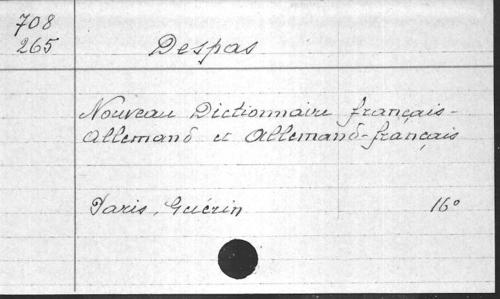 708
265
Despas
Nouveau Dictionnaire français-
allemand et allemand-français
Paris, Guérin 16°